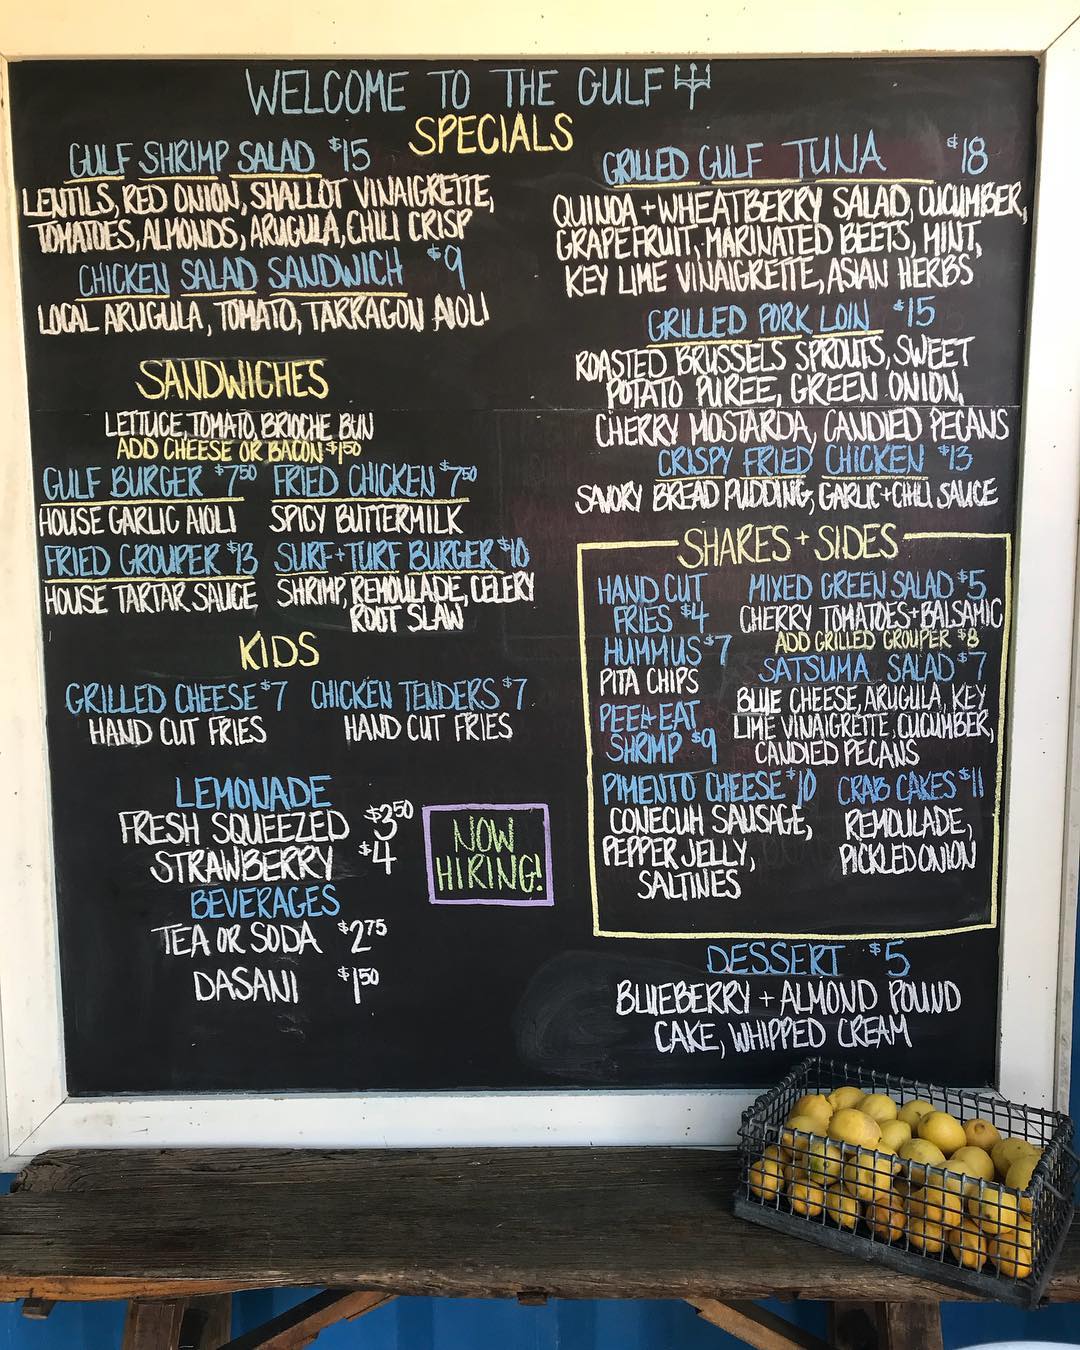 WELCOME TO THE GULF
SPECIALS
GULF SHRIMP SALAD $15
LENTILS, RED ONION, SHALLOT VINAIGRETTE,
TOMATOES, ALMONDS, ARUGULA, CHILI CRISP
CHICKEN SALAD SANDWICH $9
LOCAL ARUGULA, TOMATO, TARRAGON AIOLI
GRILLED GULF TUNA $18
QUINOA + WHEATBERRY SALAD, CUCUMBER,
GRAPEFRUIT, MARINATED BEETS, MINT,
KEY LIME VINAIGRETTE, ASIAN HERBS
GRILLED PORK LOIN $15
ROASTED BRUSSELS SPROUTS, SWEET
POTATO PUREE, GREEN ONION,
CHERRY MOSTARDA, CANDIED PECANS
CRISPY FRIED CHICKEN $13
SAVORY BREAD PUDDING, GARLIC + CHILI SAUCE
SANDWICHES
LETTUCE, TOMATO, BRIOCHE BUN
ADD CHEESE OR BACON $1.50
GULF BURGER $7.50
HOUSE GARLIC AIOLI
FRIED CHICKEN $7.50
SPICY BUTTERMILK
FRIED GROUPER $13
HOUSE TARTAR SAUCE
SURF + TURF BURGER $10
SHRIMP, REMOULADE, CELERY
ROOT SLAW
KIDS
GRILLED CHEESE $7
HAND CUT FRIES
CHICKEN TENDERS $7
HAND CUT FRIES
LEMONADE
FRESH SQUEEZED $3.50
STRAWBERRY $4
BEVERAGES
TEA OR SODA $2.75
DASANI $1.50
NOW
HIRING!
SHARES + SIDES
HAND CUT
FRIES $4
HUMMUS $7
PITA CHIPS
PEE + EAT
SHRIMP $9
MIXED GREEN SALAD $5
CHERRY TOMATOES + BALSAMIC
ADD GRILLED GROUPER $8
SATSUMA SALAD $7
BLUE CHEESE, ARUGULA, KEY
LIME VINAIGRETTE, CUCUMBER,
CANDIED PECANS
PIMENTO CHEESE $10
CONECUH SAUSAGE,
PEPPER JELLY,
SALTINES
CRAB CAKES $11
REMOULADE,
PICKLED ONION
DESSERT $5
BLUEBERRY + ALMOND POUND
CAKE, WHIPPED CREAM